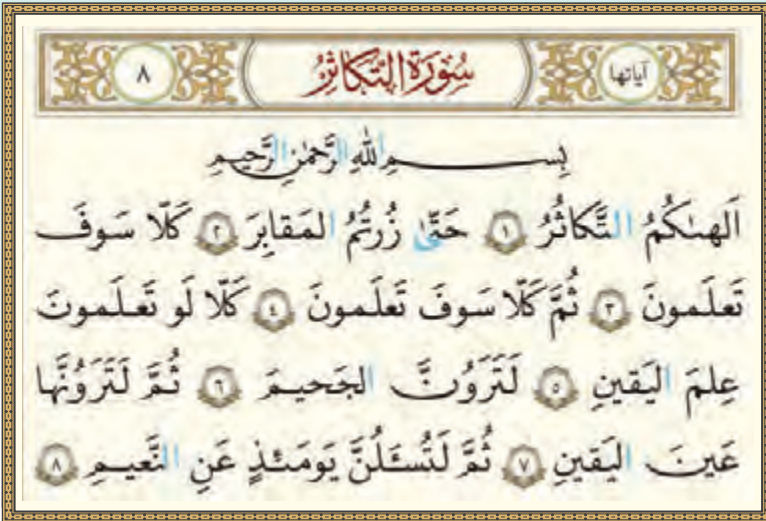 آیاتها سُوْرَةُ التَّكاثُرِ ٨
بِسمِ اللهِ الرَّحمٰنِ الرَّحيمِ
اَلهىٰكُمُ التَّكاثُرُ ١ حَتّىٰ زُرتُمُ المَقابِرَ ٢ كَلّا سَوفَ
تَعلَمونَ ٣ ثُمَّ كَلّا سَوفَ تَعلَمونَ ٤ كَلّا لَو تَعلَمونَ
عِلمَ اليَقينِ ٥ لَتَرَوُنَّ الجَحيمَ ٦ ثُمَّ لَتَرَوُنَّها
عَينَ اليَقينِ ٧ ثُمَّ لَتُسـَٔلُنَّ يَومَئِذٍ عَنِ النَّعيمِ ٨